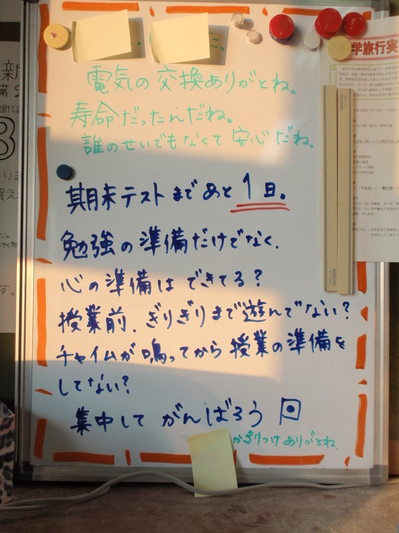 電気の交換ありがとね。
寿命だったんだね。
誰のせいでもなくて安心だね。
期末テストまであと1日。
勉強の準備だけでなく、
心の準備はできてる?
授業前、ぎりぎりまで遊んでない?
チャイムが鳴ってから授業の準備を
してない?
集中してがんばろう
かざりつけありがとね。
学旅行実